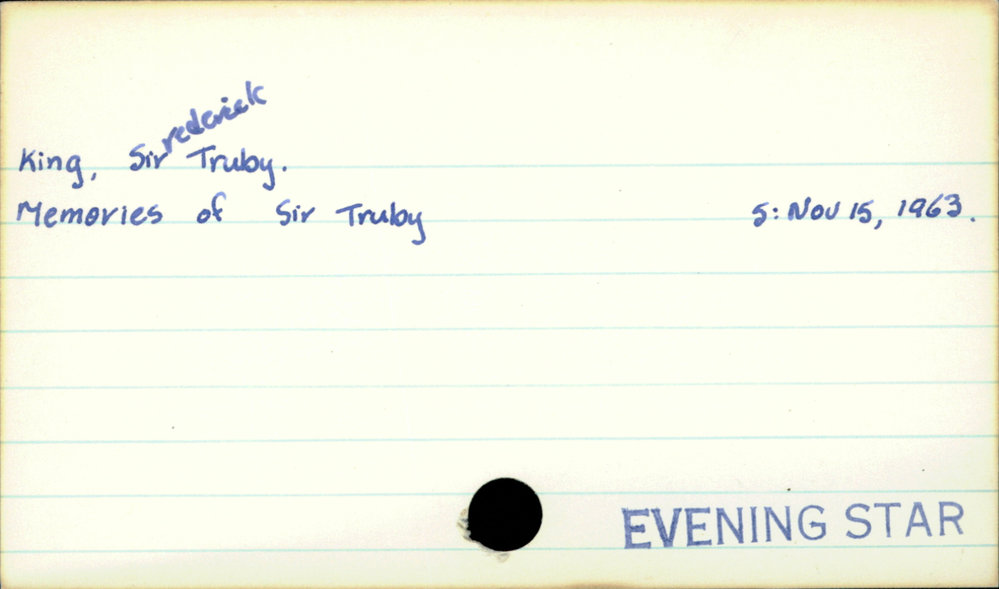 King, Sir rederick Truby.
Memories of Sir Truby 5: Nov 15, 1963.
EVENING STAR